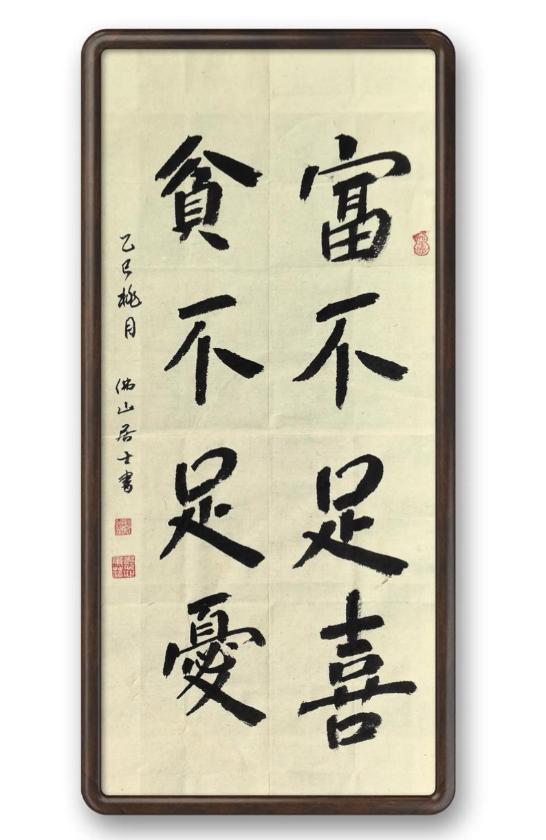 富不足喜
貧不足憂
乙巳桃月 佛山居士書